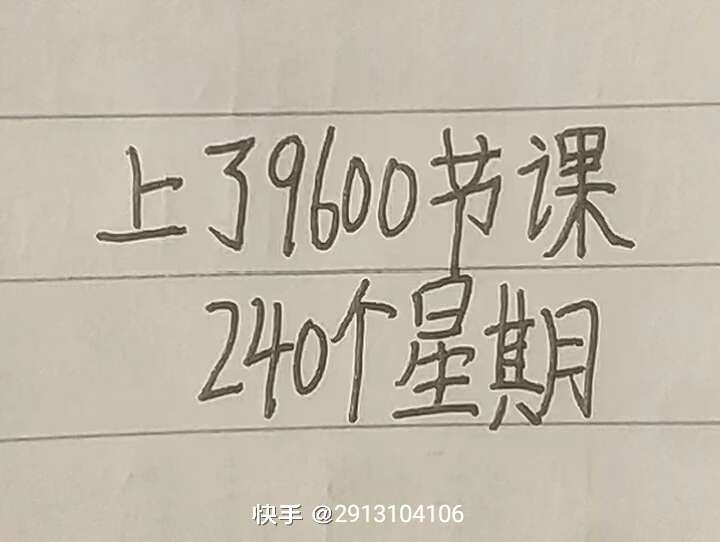 上了9600节课
240个星期
快手 @2913104106